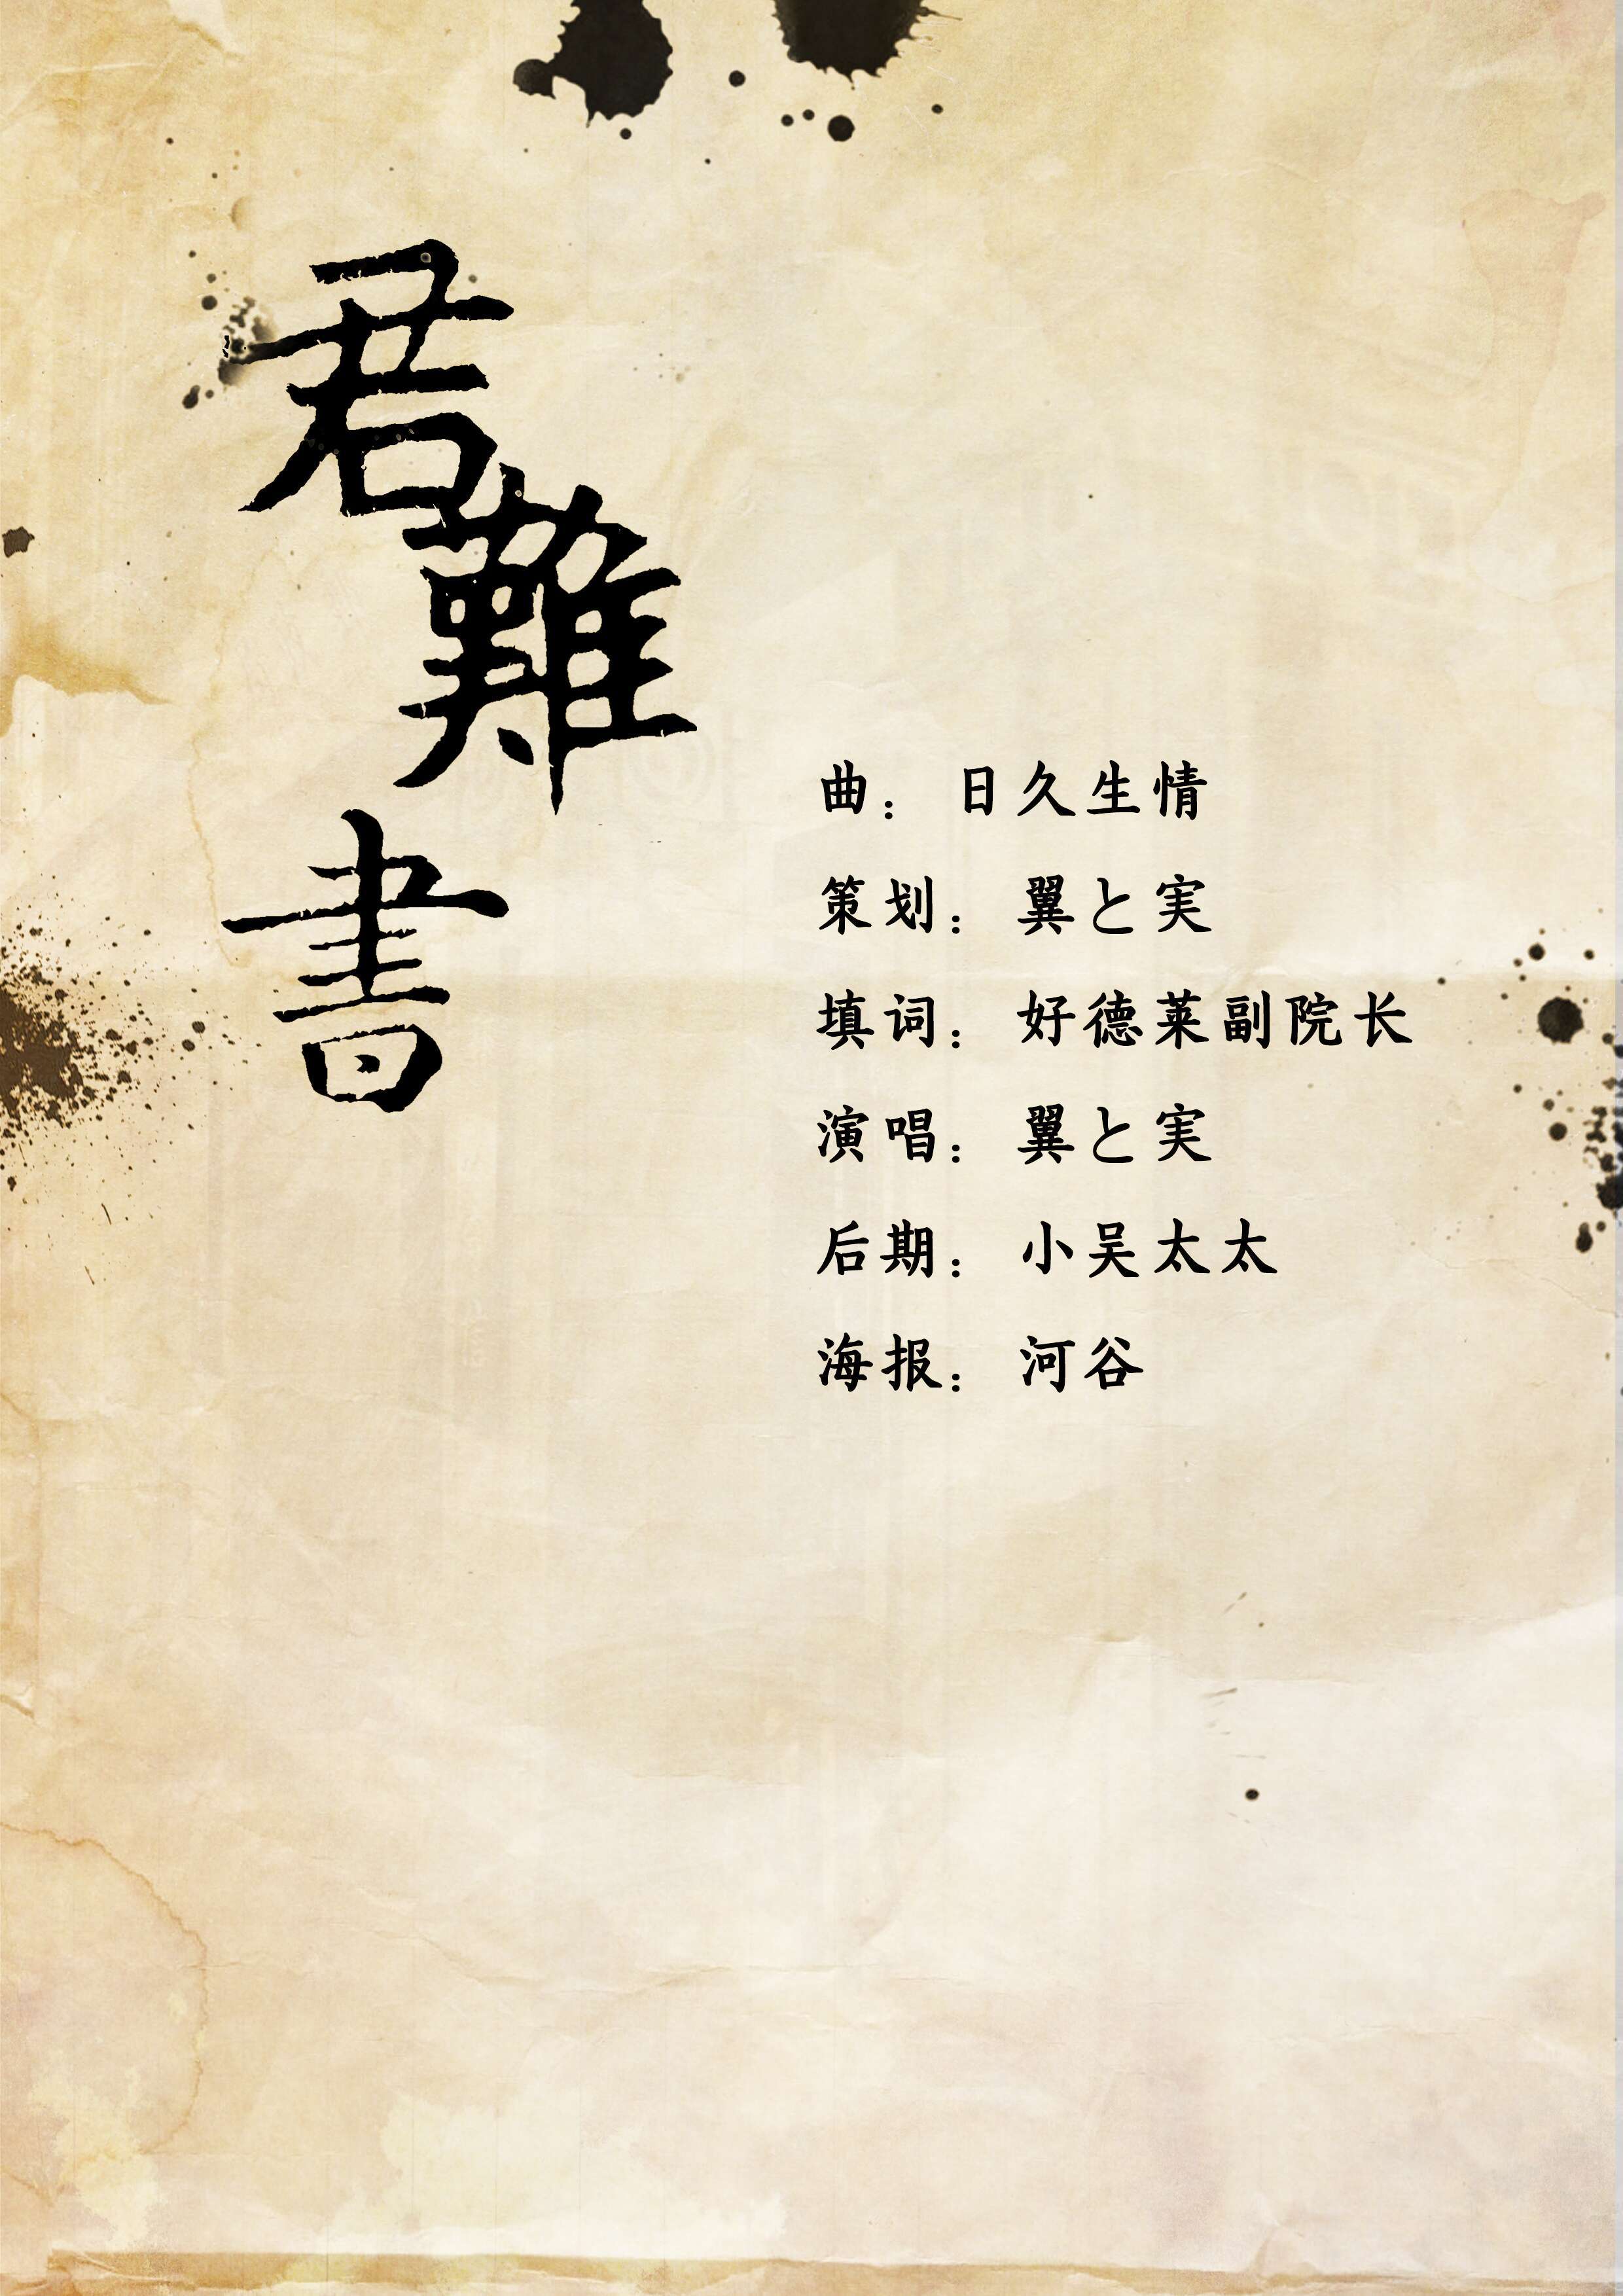 君難書
曲：日久生情
策划：翼と実
填词：好德莱副院长
演唱：翼と実
后期：小吴太太
海报：河谷